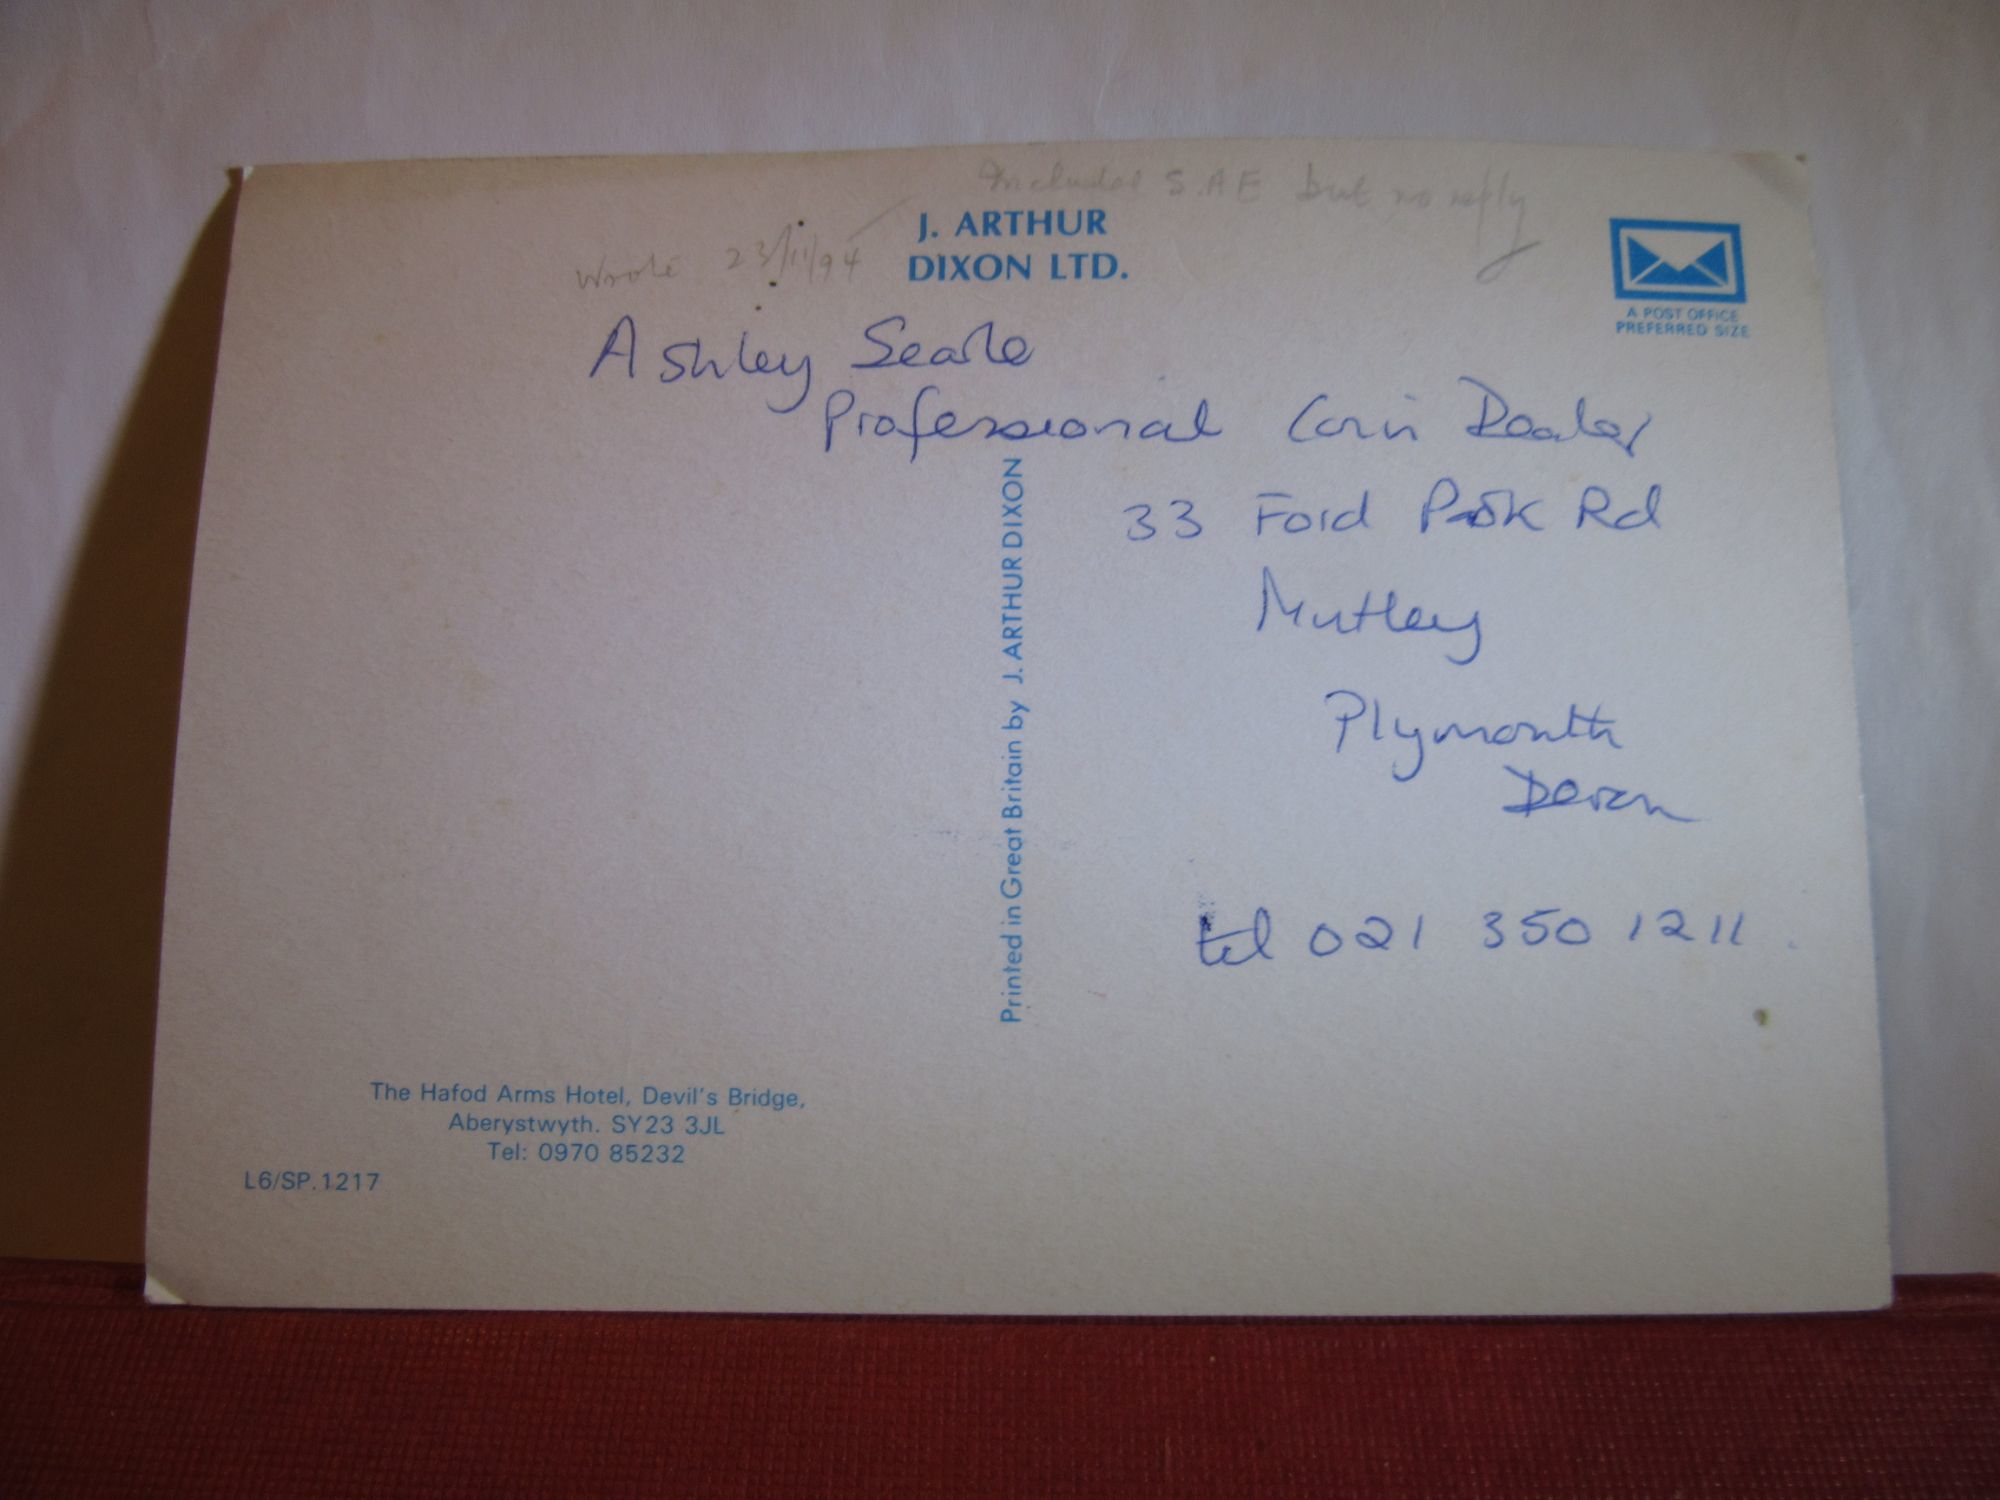 Included S.A.E but no reply
Wrote 23/11/94
J. ARTHUR
DIXON LTD.
A POST OFFICE
PREFERRED SIZE
Ashley Searle
Professional Coin Dealer
33 Ford Park Rd
Mutley
Plymouth
Devon
tel 021 350 1211
Printed in Great Britain by J. ARTHUR DIXON
The Hafod Arms Hotel, Devil's Bridge,
Aberystwyth. SY23 3JL
Tel: 0970 85232
L6/SP.1217